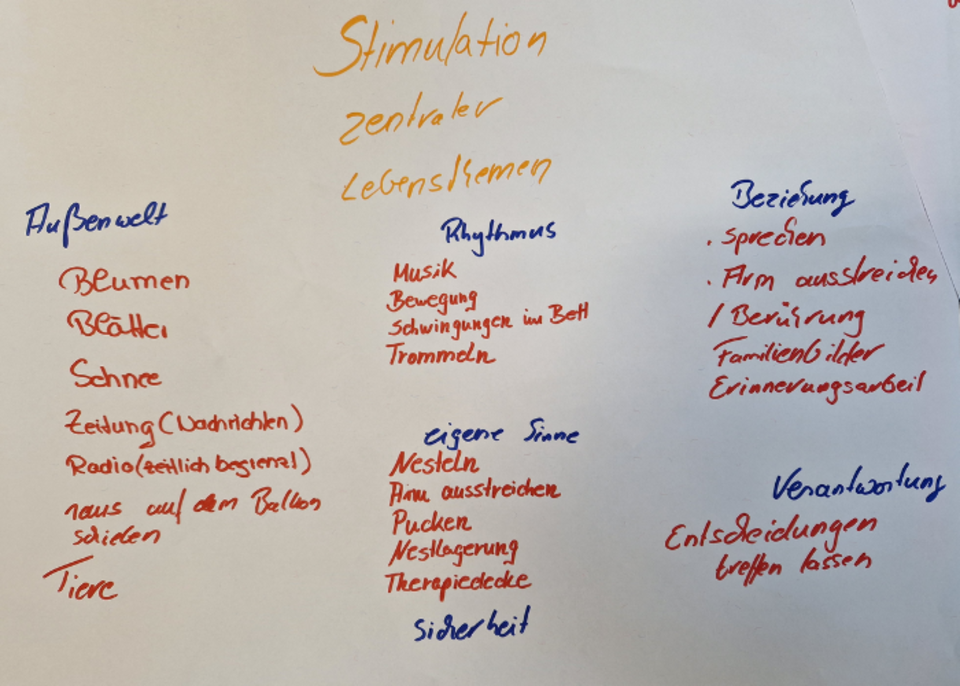 Stimulation
zentraler
Lebensthemen
Außenwelt
Blumen
Blätter
Schnee
Zeitung (Nachrichten)
Radio (zeitlich begrenzt)
raus auf dem Balkon
schieben
Tiere
Rhythmus
Musik
Bewegung
Schwingungen im Bett
Trommeln
eigene Sinne
Nesteln
Arm ausstreichen
Pucken
Nestlagerung
Therapiedecke
Sicherheit
Beziehung
. sprechen
. Arm ausstreichen
/ Berührung
Familienbilder
Erinnerungsarbeit
Verantwortung
Entscheidungen
treffen lassen